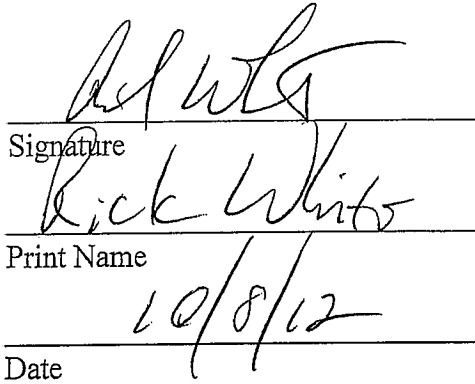 Signature
Rick White
Print Name
10/8/12
Date